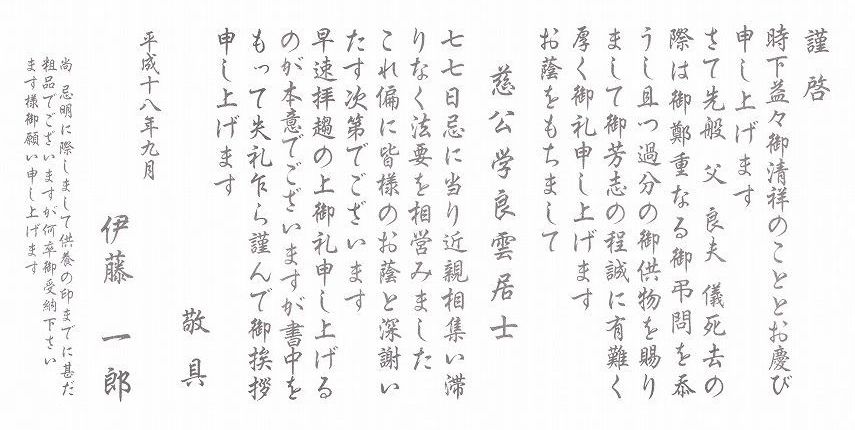 謹啓
時下益々御清祥のこととお慶び
申し上げます
さて先般 父 良夫 儀死去の
際は御鄭重なる御弔問を忝
うし且つ過分の御供物を賜り
まして御芳志の程誠に有難く
厚く御礼申し上げます
お蔭をもちまして
慈公学良雲居士
七七日忌に当り近親相集い滞
りなく法要を相営みました
これ偏に皆様のお蔭と深謝い
たす次第でございます
早速拝趨の上御礼申し上げる
のが本意でございますが書中を
もって失礼乍ら謹んで御挨拶
申し上げます
敬具
平成十八年九月
伊藤 一郎
尚 忌明に際しまして供養の印までに甚だ
粗品でございますが何卒御受納下さい
ます様御願い申し上げます